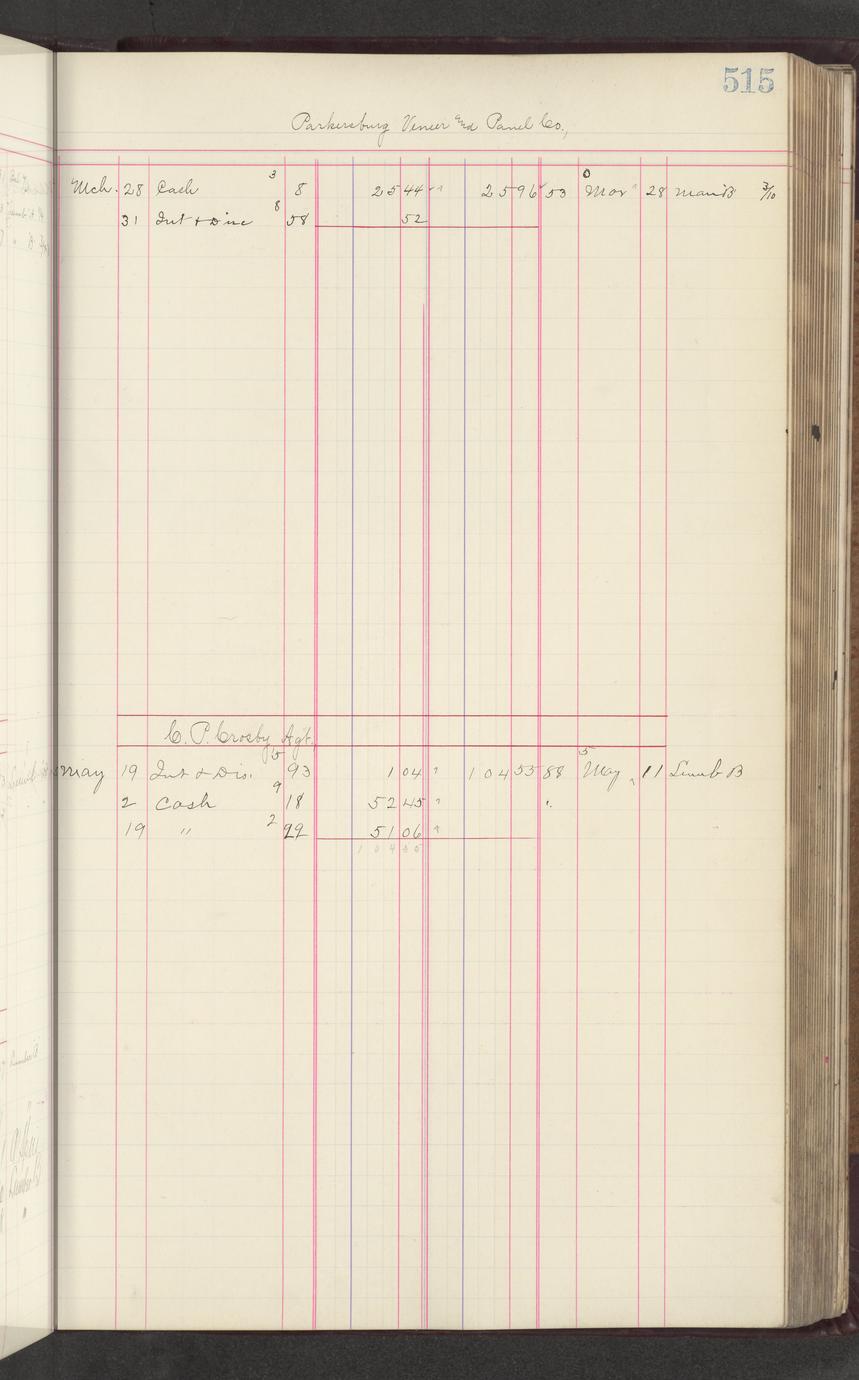 515
Parkersburg Veneer and Panel Co.,
Mch. 28 Cash 3 8 2544 2596 53 0 Mar 28 Man'B 3/10
31 Int & Disc 8 58 52
C. P. Crosby Agt.
May 19 Int & Dis. 5 93 1 04 10455 88 5 May 11 Lumb B
2 Cash 9 18 52 45
19 " 2 22 51 06
104 55